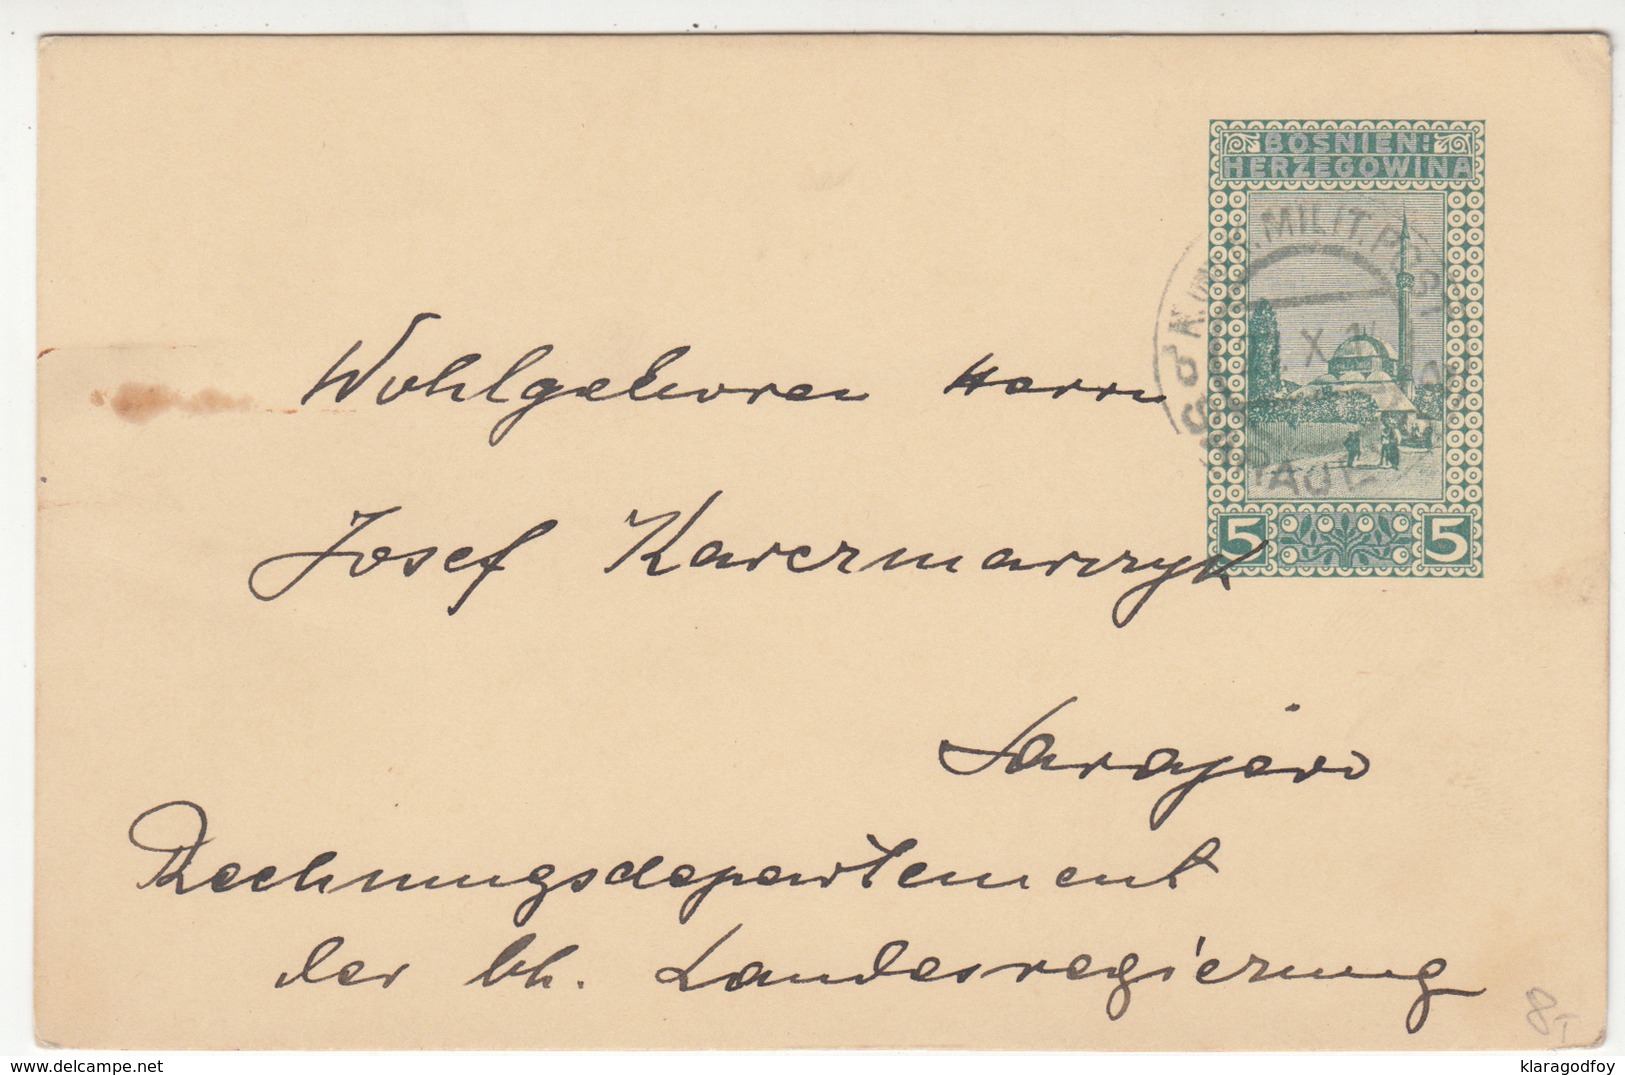 BOSNIEN:
HERZEGOWINA
MILIT. POST
X
Wohlgeboren Herrn
Josef
5 5
Sarajevo
Rechnungsdepartement
der bh. Landesregierung
8
delcampe.net
klaragodfoy